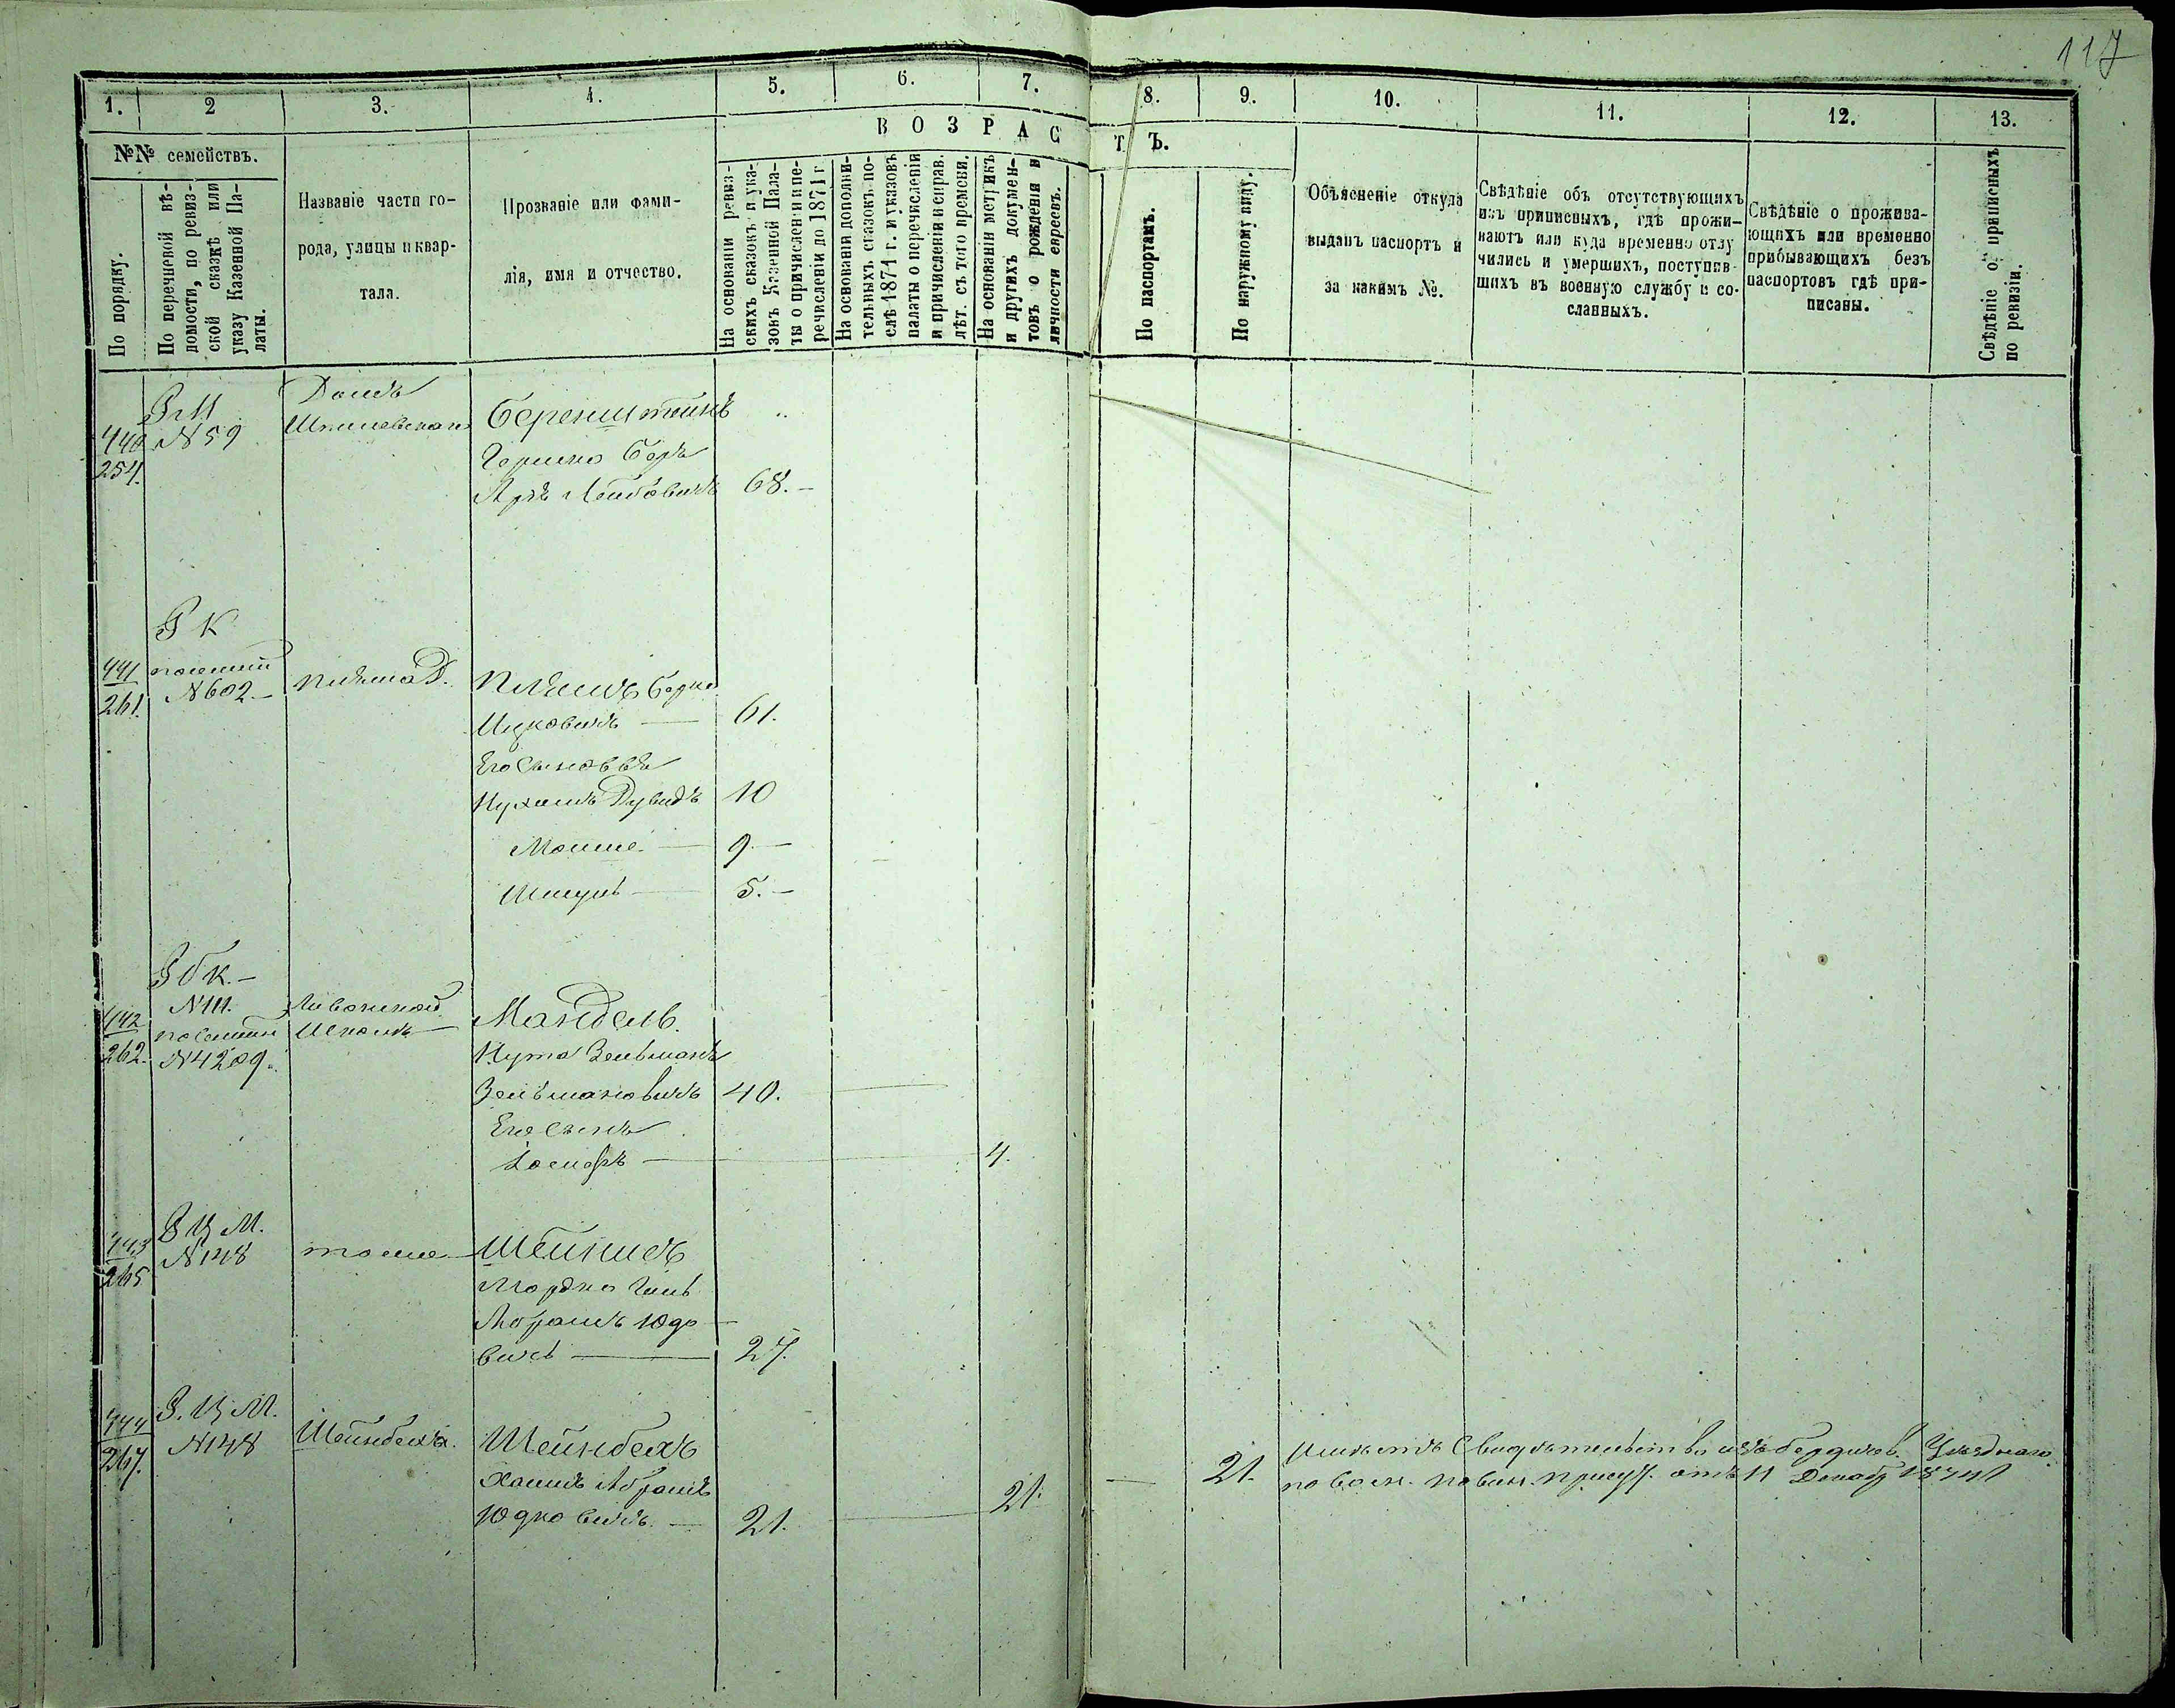 117
1. 2 3. 4. 5. 6. 7. 8. 9. 10. 11. 12. 13.
В О З Р А С Т Ъ.
№№ семействъ.
По порядку.
По перечневой вѣ-
домости, по ревиз-
ской сказкѣ или
указу Казенной Па-
латы.
Названіе части го-
рода, улицы и квар-
тала.
Прозваніе или фами-
лія, имя и отчество.
На основаніи ревиз-
скихъ сказокъ и ука-
зовъ Казенной Пала-
ты о причисленіи и пе-
речисленіи до 1871 г.
На основаніи дополни-
тельныхъ сказокъ по-
слѣ 1871 г. и указовъ
палаты о перечисленіи
и причисленіи и справ.
лѣт. съ того времени.
На основаніи метрикъ
и другихъ докумен-
товъ о рожденіи и
личности евреевъ.
По паспортамъ.
По наружному виду.
Объясненіе откуда
выданъ паспортъ и
за какимъ №.
Свѣдѣніе объ отсутствующихъ
изъ приписныхъ, гдѣ прожи-
ваютъ или куда временно отлу
чились и умершихъ, поступив-
шихъ въ военную службу и со-
сланныхъ.
Свѣдѣніе о прожива-
ющихъ или временно
прибывающихъ безъ
паспортовъ гдѣ при-
писаны.
Свѣдѣніе о приписныхъ
по ревизіи.
440
254.
N 59
Домъ
Беренштейнъ
Гершко Беръ
Аръ Лейбовичъ 68.-
441
261.
N 602.-
Берко
Ицковичъ 61.
Его сыновья
Нухимъ Дувидъ 10
Мошше 9.-
5.-
442
262.
N 111.
N 4209.
Мандель.
Нута Зельманъ
Зельмановичъ 40.
Его сынъ
Іосифъ 4.
443
265
В Ц М.
N 148
тоже
Мордко
Абрамъ Юдко-
вичъ 27.
444
267.
В. Ц М.
N 148
Шейнбейна.
Шейнбейнъ
Хаимъ Абрамъ
Юдковичъ. 21. 21. 21.
Имѣетъ Свидѣтельство изъ Бердичев. Уѣзднаго
по воин. повин. присут. отъ 11 Декабр 1874